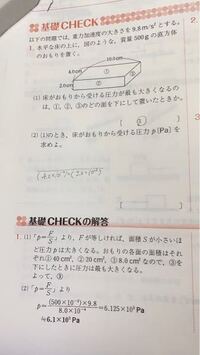 基礎CHECK
以下の問題では,重力加速度の大きさを9.8m/s²とする。
1. 水平な床の上に,図のような,質量500gの直方体
のおもりを置く。
10.0cm
4.0cm
①
②
③
2.0cm
(1) 床がおもりから受ける圧力が最も大きくなるの
は,①,②,③のどの面を下にして置いたときか。
[ ③ ]
(2) (1)のとき,床がおもりから受ける圧力p[Pa]を
求めよ。
基礎CHECKの解答
1. (1) 「p=F/S」より,Fが等しければ,面積Sが小さいほ
ど圧力は大きくなる。おもりの各面の面積はそれ
ぞれ① 40cm² ② 20cm² ③ 8.0cm² なので,③を
下にしたときに圧力は最も大きくなる。
よって,③
(2) 「p=F/S」より
p=(500×10⁻³)×9.8/8.0×10⁻⁴=6.125×10³Pa
≒6.1×10³Pa
2.
3